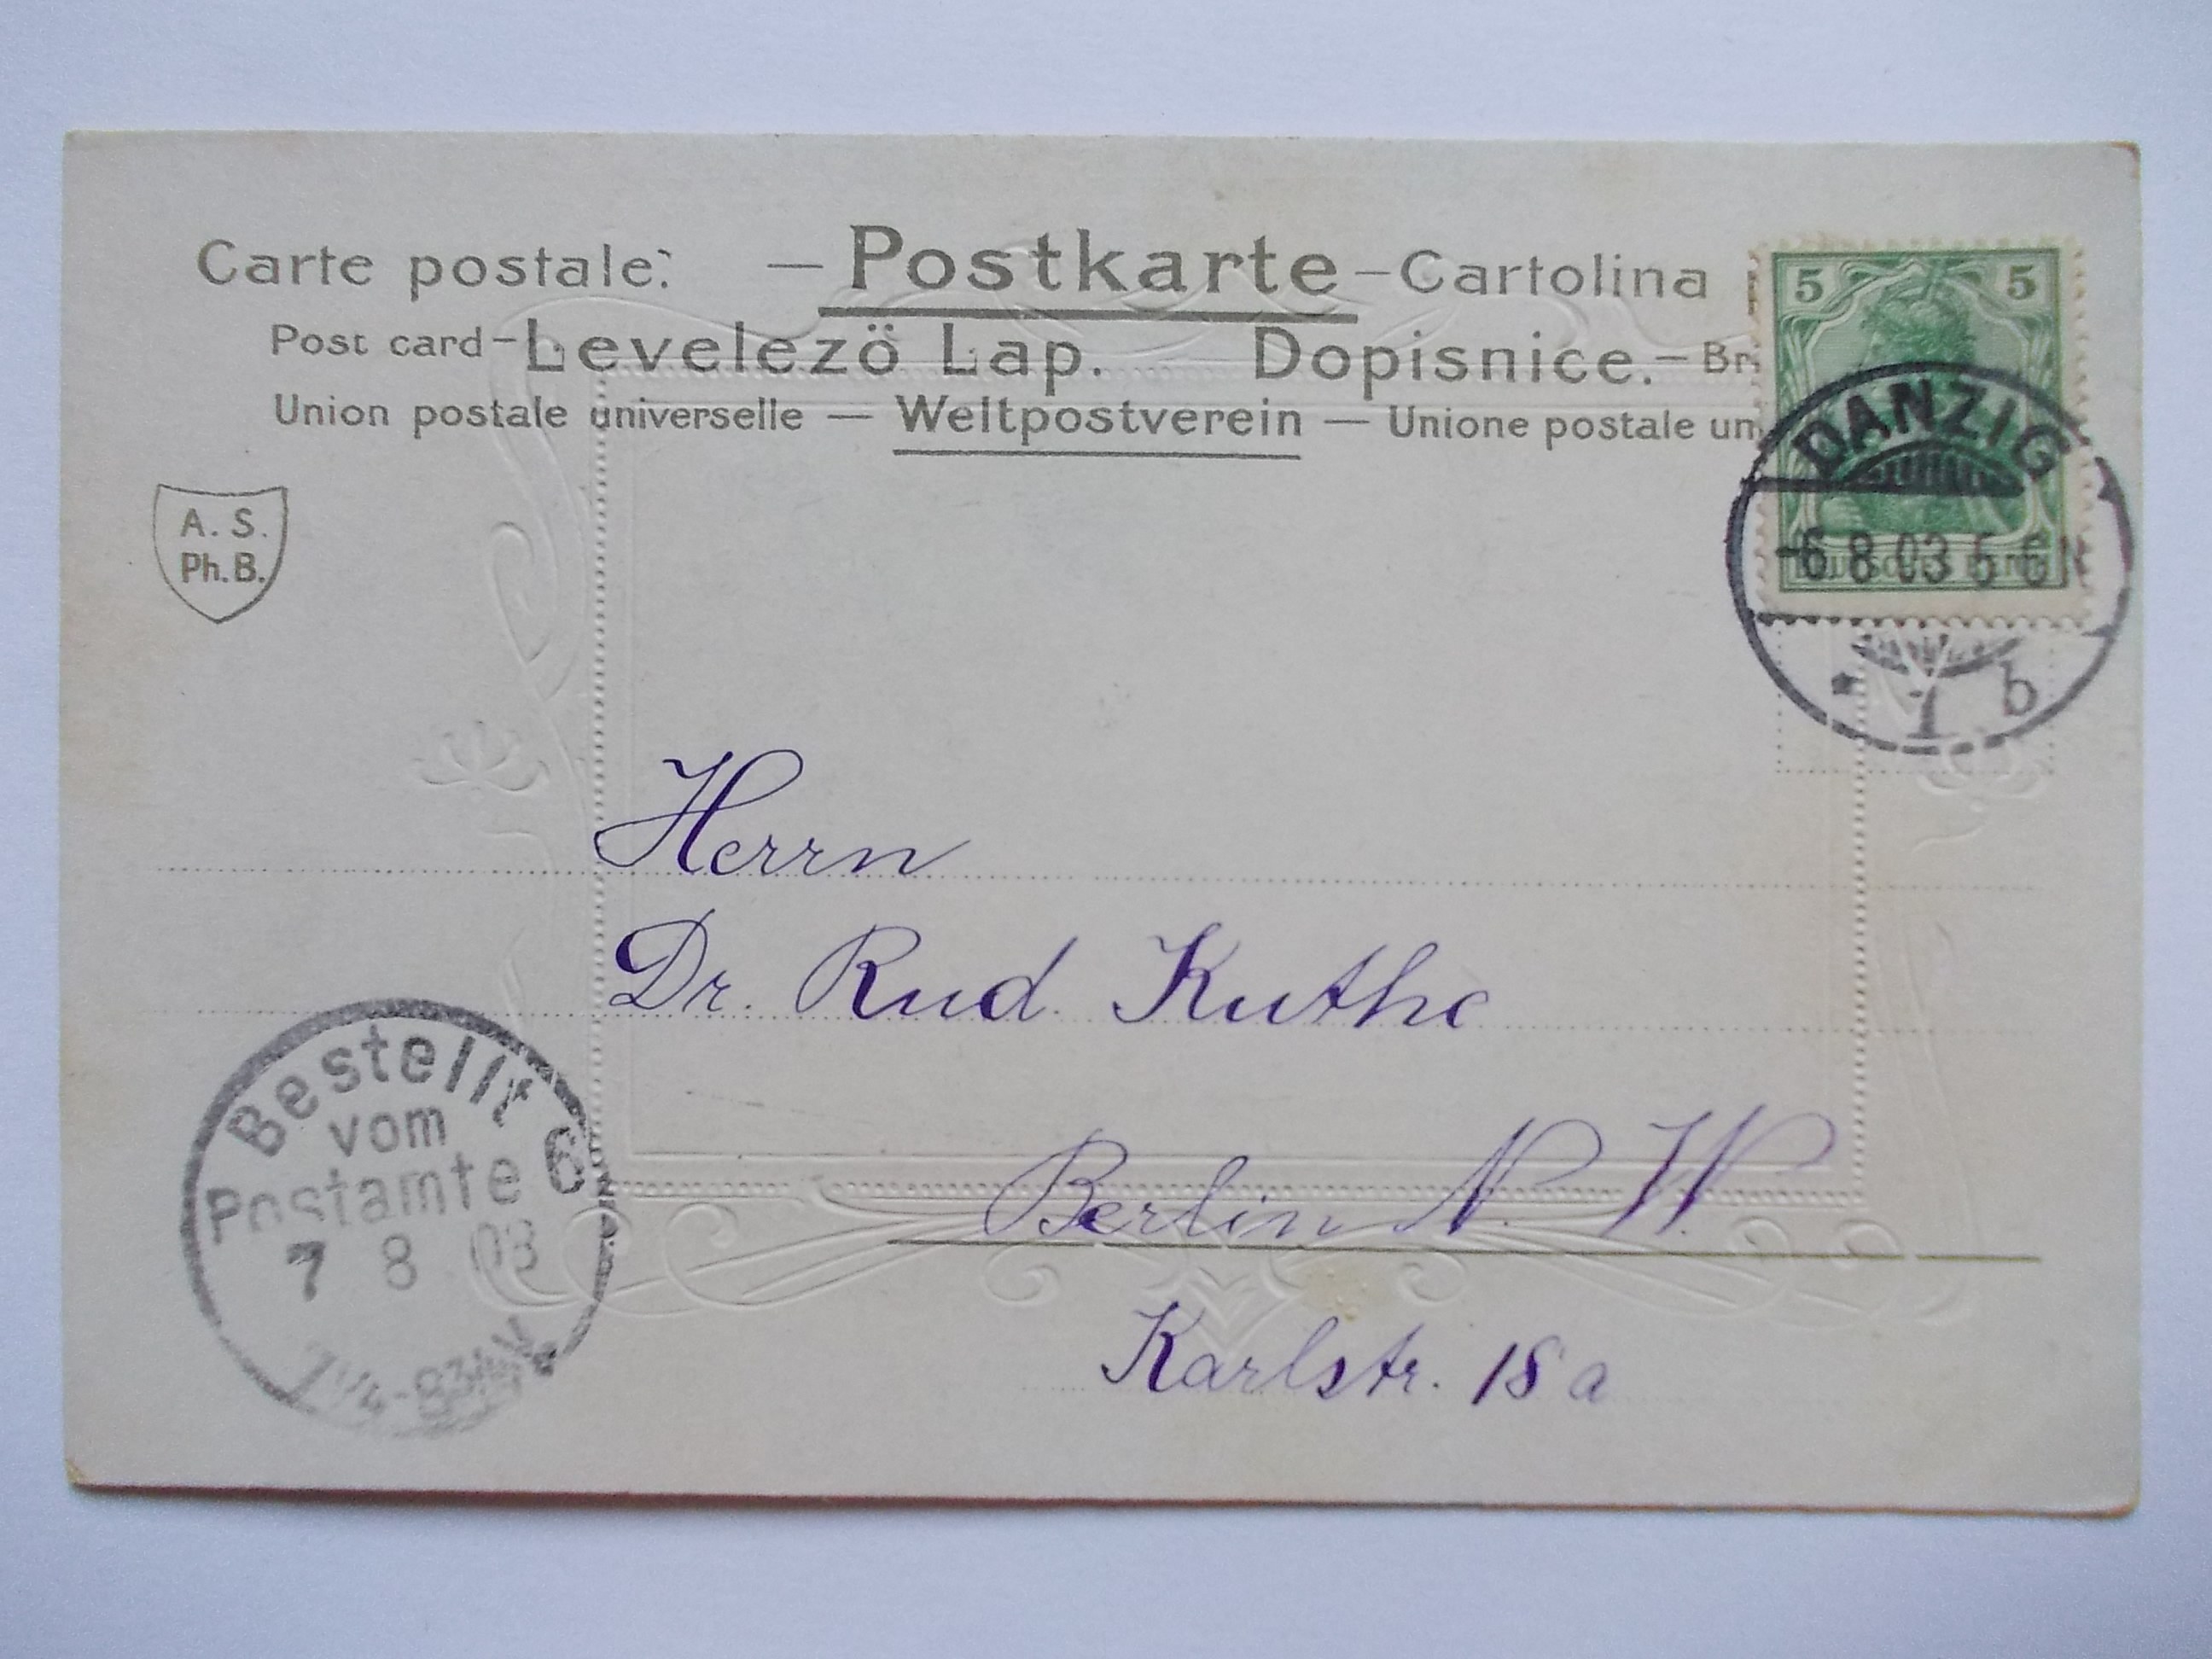 Carte postale. — Postkarte – Cartolina
Post card – Levelezö Lap. Dopisnice. – Br
Union postale universelle — Weltpostverein — Unione postale un
5 5
DANZIG
-6 8 03 5-6 N
* 1 b
A. S.
Ph. B.
Herrn
Dr. Rud. Kuthe
Berlin N. W.
Karlstr. 18 a
Bestellt
vom
Postamte 6
7 8 03
7 1/4 - 8 3/4 V.